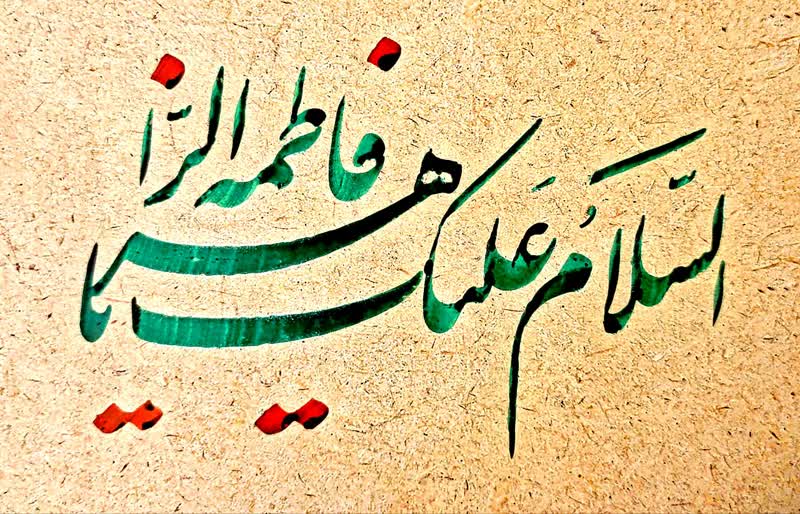 السّلامُ عَلیک یا فاطمه الزّهرا